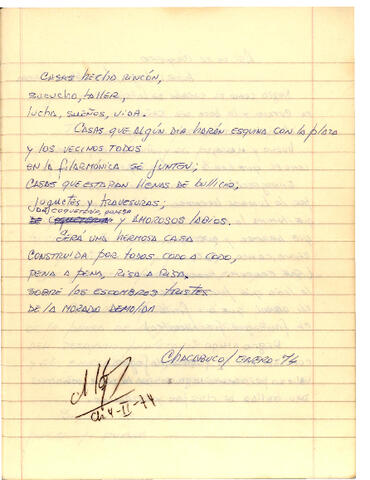 CASAS hecho RINCÓN,
sucucho, taller,
lucha, sueños, vida.
CASAS que Algún día harán esquina con la plaza
y los vecinos todos
en la filarmónica se junten;
CASAS que estarán llenas de bullicio,
juguetes y travesuras;
de coquetona y AMOROSOS lAbios.
Será una hermosa casa
construida por todos codo a codo,
pena a pena, risa a risa.
sobre los escombros tristes
de la morada demolida
Chacabuco / enero - 74
4-II-74